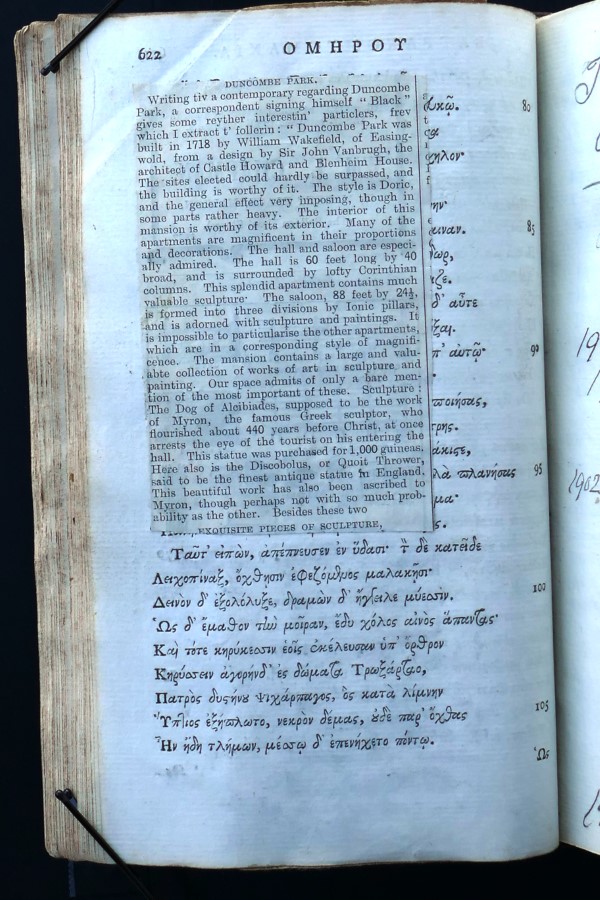 622
ΟΜΗΡΟΥ
DUNCOMBE PARK.
Writing tiv a contemporary regarding Duncombe
Park, a correspondent signing himself "Black"
gives some reyther interestin' particlers, frev
which I extract t' follerin: "Duncombe Park was
built in 1718 by William Wakefield, of Easing-
wold, from a design by Sir John Vanbrugh, the
architect of Castle Howard and Blenheim House.
The sites elected could hardly be surpassed, and
the building is worthy of it. The style is Doric,
and the general effect very imposing, though in
some parts rather heavy. The interior of this
mansion is worthy of its exterior. Many of the
apartments are magnificent in their proportions
and decorations. The hall and saloon are especi-
ally admired. The hall is 60 feet long by 40
broad, and is surrounded by lofty Corinthian
columns. This splendid apartment contains much
valuable sculpture. The saloon, 88 feet by 24½,
is formed into three divisions by Ionic pillars,
and is adorned with sculpture and paintings. It
is impossible to particularise the other apartments,
which are in a corresponding style of magnifi-
cence. The mansion contains a large and valu-
abte collection of works of art in sculpture and
painting. Our space admits of only a bare men-
tion of the most important of these. Sculpture:
The Dog of Alcibiades, supposed to be the work
of Myron, the famous Greek sculptor, who
flourished about 440 years before Christ, at once
arrests the eye of the tourist on his entering the
hall. This statue was purchased for 1,000 guineas.
Here also is the Discobolus, or Quoit Thrower,
said to be the finest antique statue in England.
This beautiful work has also been ascribed to
Myron, though perhaps not with so much prob-
ability as the other. Besides these two
EXQUISITE PIECES OF SCULPTURE,
80
85
δ' αὖτε
π' αὐτῷ· 90
ποιήσας,
πλανήσας 95
Ταῦτ' εἰπὼν, ἀπέπνευσεν ἐν ὕδασι· τ δὲ κατεῖδε
Λειχοπίναξ, ὄχθησιν ἐφεζόμενος μαλακῇσι·
Δεινὸν δ' ἐξολόλυξε, δραμὼν δ' ἤγγειλε μύεσσιν. 100
Ὡς δ' ἔμαθον τὴν μοῖραν, ἔδυ χόλος αἰνὸς ἅπαντας·
Καὶ τότε κηρύκεσσιν ἑοῖς ἐκέλευσαν ὑπ' ὄρθρον
Κηρύσσειν ἀγορήνδ' ἐς δώματα Τρωξάρταο,
Πατρὸς δυστήνου Ψιχάρπαγος, ὃς κατὰ λίμνην
Ὕπτιος ἐξήπλωτο, νεκρὸν δέμας, οὐδὲ παρ' ὄχθας 105
Ἦν ἤδη τλήμων, μέσσῳ δ' ἐπενήχετο πόντῳ.
Ὡς
1902